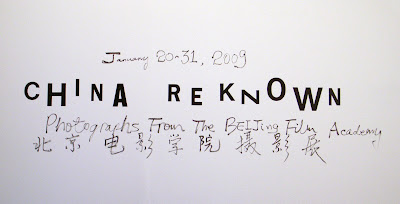 January 20-31, 2009
CHINA REKNOWN
Photographs From The BEIJing Film Academy
北京电影学院 摄影展